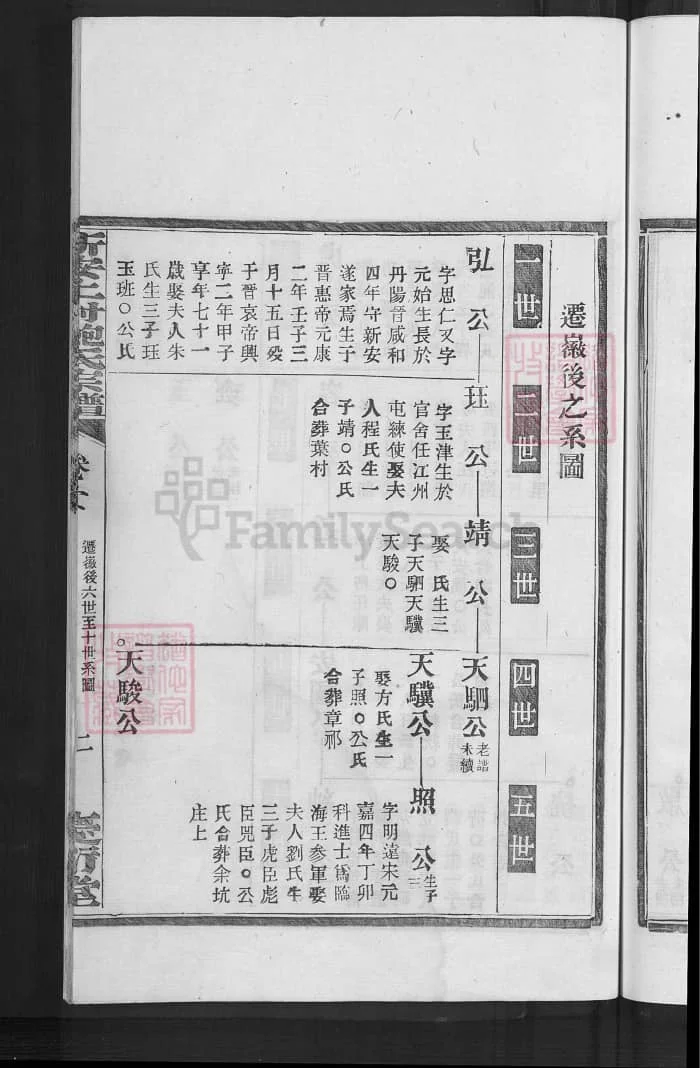 遷𡽪後之系圖
一世
二世
三世
四世
五世
弘公
字思仁又字
元始生長於
丹陽晉咸和
四年守新安
遂家焉生子
晉惠帝元康
二年壬子三
月十五日歿
于晉哀帝興
寧二年甲子
享年七十一
歲娶夫人朱
氏生三子珏
玉班○公氏
珏公
字玉津生於
官舍任江州
屯練使娶夫
人程氏生一
子靖○公氏
合葬葉村
靖公
娶 氏生三
子天駟天驥
天駿○
天駟公
老譜
未續
天驥公
娶方氏生一
子照○公氏
合葬章祁
照公
生子
三
字明遠宋元
嘉四年丁卯
科進士爲臨
海王參軍娶
夫人劉氏生
三子虎臣彪
臣兕臣○公
氏合葬余坑
庄上
○天駿公
新安上村鮑氏宗譜
遷𡽪後六世至十世系圖
二
FamilySearch